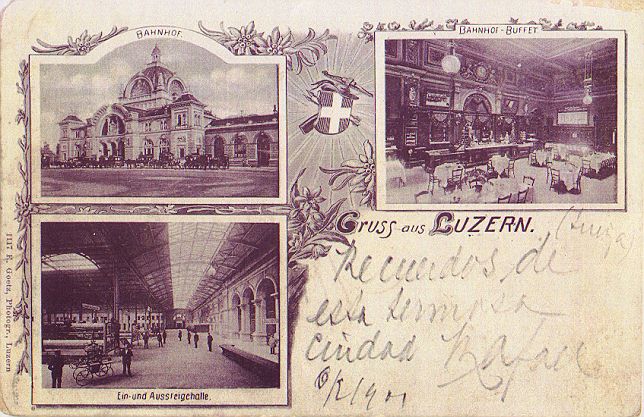 BAHNHOF.
BAHNHOF-BUFFET
GRUSS AUS LUZERN.
(Suiza
Recuerdos de
esta hermosa
ciudad Rafael
6/X/1901
Ein- und Aussteigehalle.
1117 E. Goetz, Photogr., Luzern